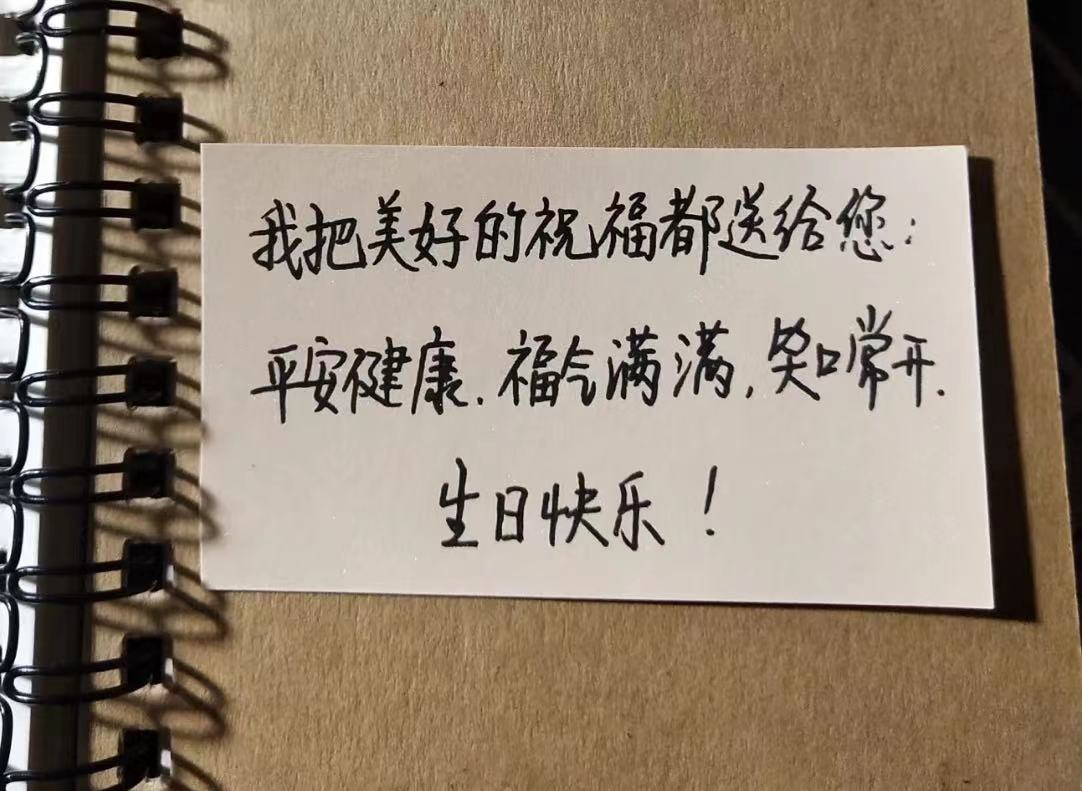 我把美好的祝福都送给您：
平安健康.福气满满,笑口常开.
生日快乐！